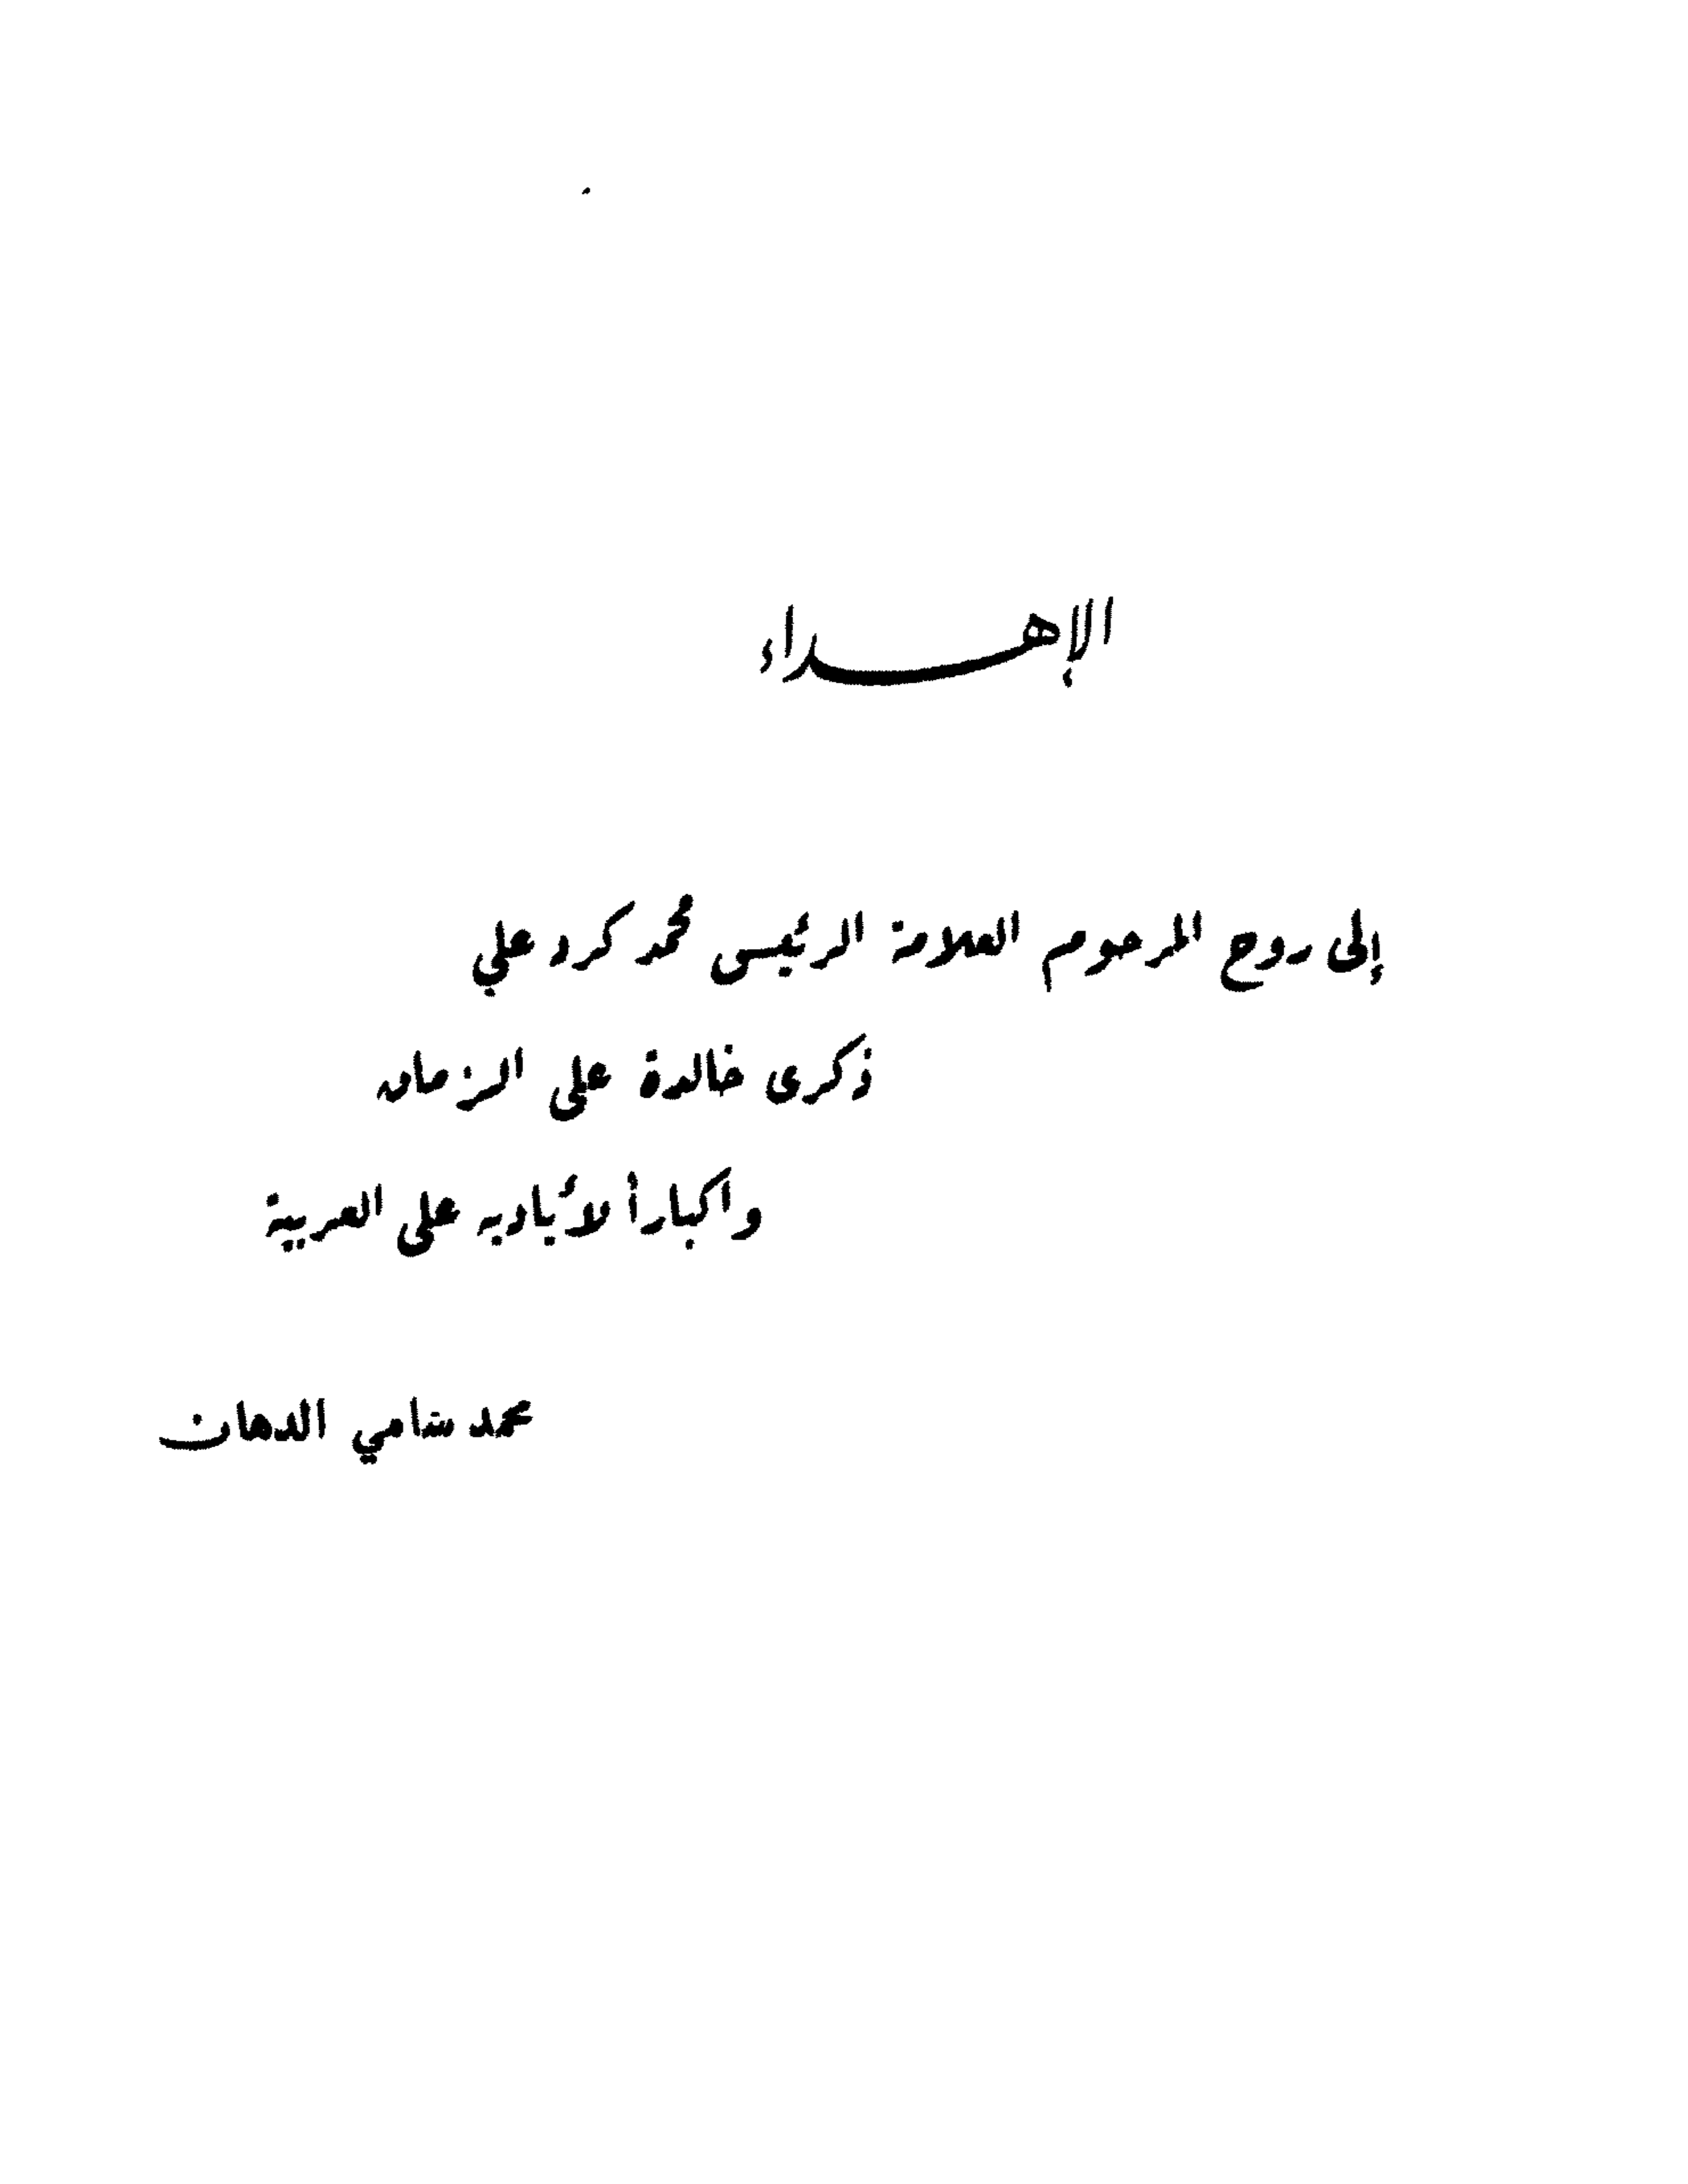 الإهداء
إلى روح المرحوم العلامة الرئيس محمد كرد علي
ذكرى خالدة على الزمان
واكباراً لأياديه على العربية
محمد سامي الدهان